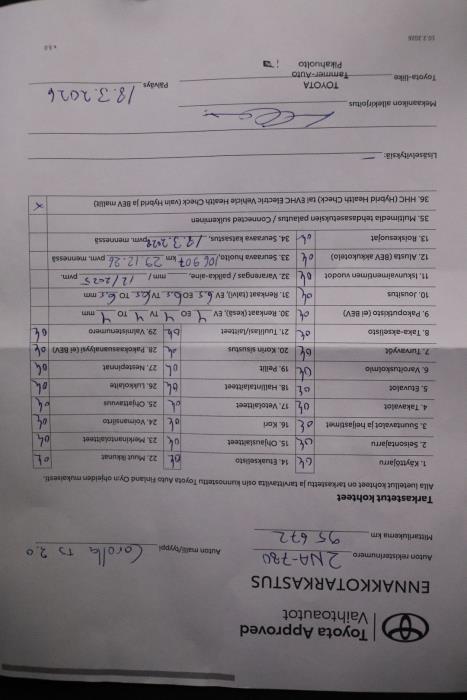 Toyota Approved
Vaihtoautot
ENNAKKOTARKASTUS
Auton rekisterinumero 2NA-780 Auton malli/tyyppi Corolla TS 2.0
Mittarilukema km 95 672
Tarkastetut kohteet
Alla luetellut kohteet on tarkastettu ja tarvittaessa osin kunnostettu Toyota Auto Finland Oy:n ohjeiden mukaisesti.
1. Käyttöjarru ok 14. Etuakselisto ok 22. Muut liikunat ok
2. Seisontajarru ok 15. Ohjauslaitteet ok 23. Merkinantolaitteet ok
3. Suuntavalot ja heijastimet ok 16. Kori ok 24. Voimansiirto ok
4. Takavalot ok 17. Vetolaitteet ok 25. Ohjattavuus ok
5. Etuvalot ok 18. Hallintalaitteet ok 26. Lukulaite ok
6. Varoituskolmio ok 19. Peilit ok 27. Nestepinnat ok
7. Turvavyöt ok 20. Korin sisustus ok 28. Pakokaasuanalyysi (ei BEV) ok
8. Taka-akselisto ok 21. Tuulilasi/laitteet ok 29. Valmistenumero ok
9. Pakoputkisto (ei BEV) ok 30. Renkaat (kesä), EV 4 EO 4 TV 4 TO 4 mm
10. Jousitus ok 31. Renkaat (talvi), EV 6,5 EO 6,5 TV 6,5 TO 6,5 mm
11. Iskunvaimentimen vuodot ok 32. Vararengas / paikka-aine, mm / 12/2025 pvm.
12. Alusta (BEV akkukotelo) ok 33. Seuraava huolto, 106 907 km 29.12.26 pvm. mennessä
13. Roiskesuojat ok 34. Seuraava katsastus, 19.3.2028 pvm. mennessä
35. Multimedia tehdasasetuksien palautus / Connected sulkeminen
36. HHC (Hybrid Health Check) tai EVHC Electric Vehicle Health Check (vain Hybrid ja BEV mallit) x
Lisäselvityksiä: –
Mekaanikon allekirjoitus
Toyota-liike TOYOTA Tammer-Auto Pikahuolto Päiväys 18.3.2026